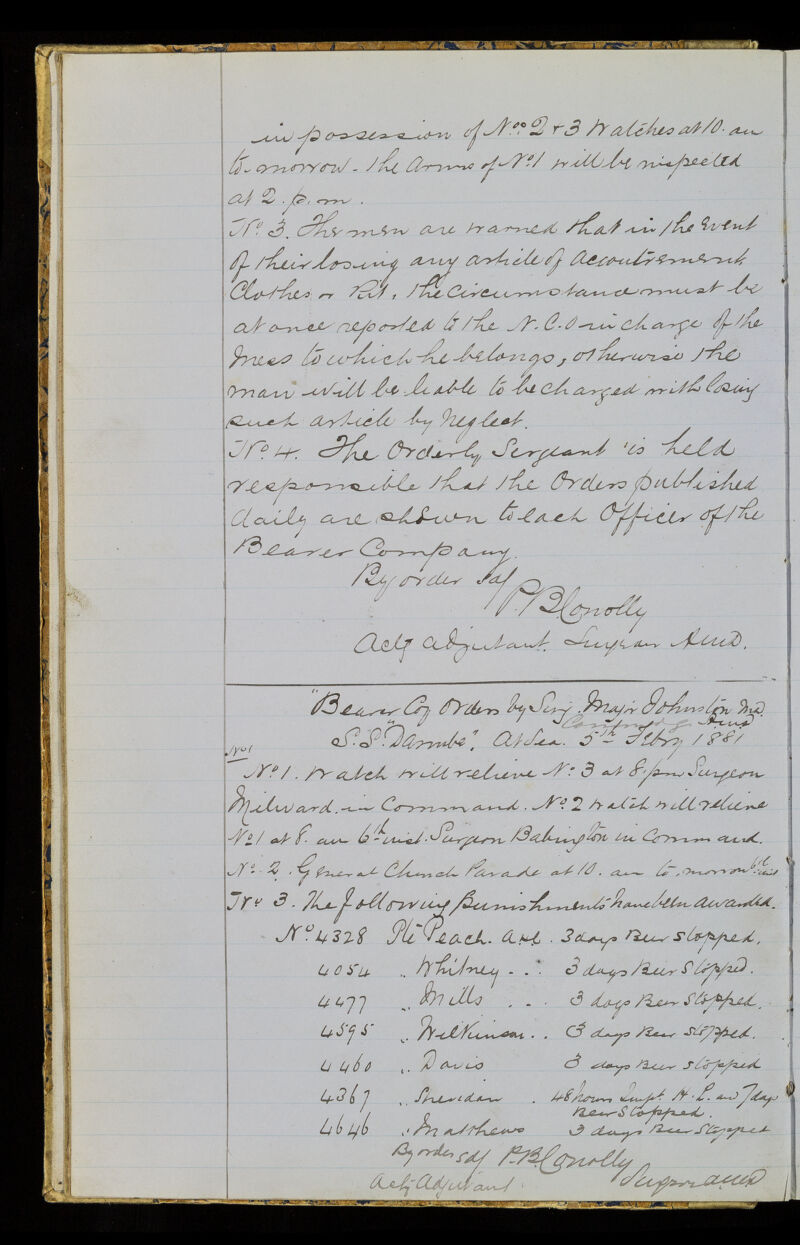 in possession of Nos 2 & 3 Watches at 10. am
to-morrow - The Arms of No 1 will be inspected
at 2. p. m.
No 3. The men are warned that in the Event
of their losing any article of Accoutrements
Clothes or Kit, the circumstance must be
at once reported to the N.C.O in charge of the
Mess to which he belongs, otherwise the
man will be liable to be charged with losing
such article by Neglect.
No 4. The Orderly Sergeant is held
responsible that the Orders published
daily are shewn to each Officer of the
Bearer Company.
By order Sd/
P.B. Conolly
Actg Adjutant. Surgeon A.M.D.
"Bearer Coy Orders by Surg. Major Johnston M.D.
Commdg A.M.D
S.S. "Danube". At Sea. 5th Febry 1881
No 1
No 1. Watch will relieve No 3 at 8. pm Surgeon
Milward. in Command. No 2 Watch will relieve
No 1 at 8. am 6th inst. Surgeon Babington in Command.
No 2. General Church Parade at 10. am to-morrow 6th inst
No 3. The following Punishments have been awarded.
No 4328 Pte Peach. 3 days Beer Stopped.
4054 " Whitney - . . 3 days Beer Stopped.
4477 " Mills . . . 3 days Beer Stopped.
4595 " Wilkinson . . 3 days Beer Stopped.
4460 " Davis 3 days Beer Stopped
4367 " Sheridan . 48 hours Impt. H.L. and 7 days
Beer Stopped.
4646 " Matthews 3 days Beer Stopped
By order Sd/ P.B. Conolly
Actg Adjutant. Surgeon A.M.D